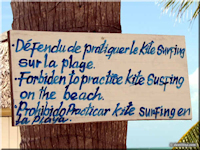 .Défendu de pratiquer le Kite Surfing
sur la plage.
.Forbiden to practice Kite Surfing
on the beach.
.Prohibido Practicar kite surfing en
La playa.